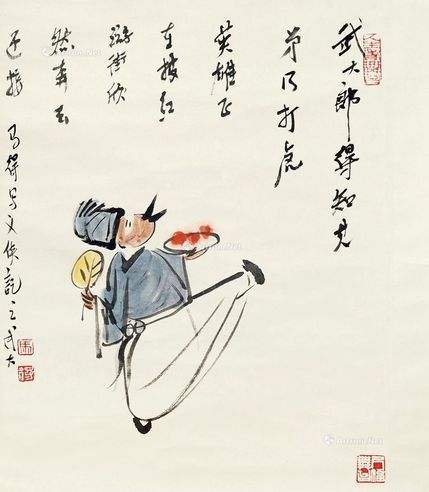 武大郎得知兄
弟乃打虎
英雄正
在披红
游街欣
然奔去
迎接 马得写义侠記之武大
Artron.Net